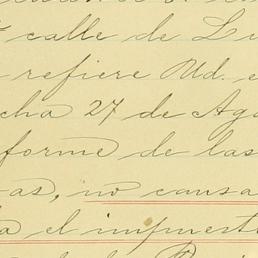 calle de Li
refiere Ud. e
cha 27 de Ago
forme de las
as, no causa
a el impuest